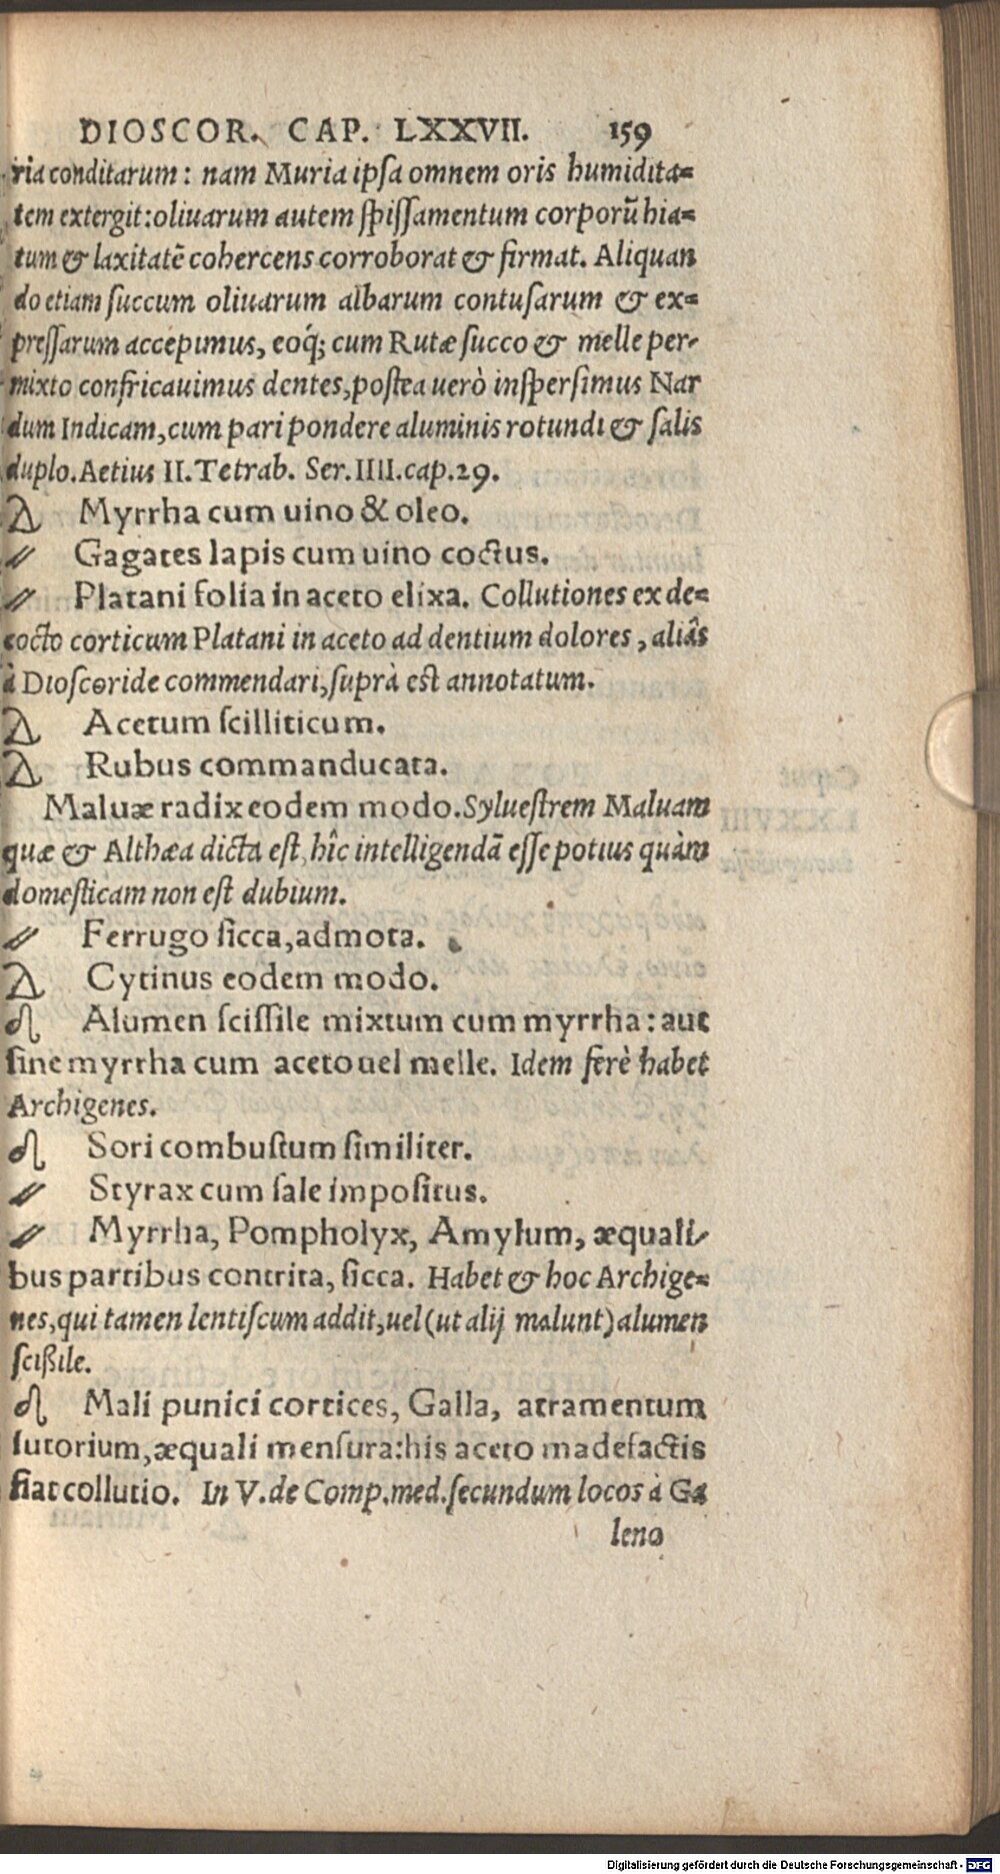 DIOSCOR. CAP. LXXVII. 159
ria conditarum: nam Muria ipsa omnem oris humidita=
tem extergit: oliuarum autem spissamentum corporũ hia=
tum & laxitatẽ cohercens corroborat & firmat. Aliquan
do etiam succum oliuarum albarum contusarum & ex=
pressarum accepimus, eoq́; cum Rutæ succo & melle per-
mixto confricauimus dentes, postea uerò inspersimus Nar
dum Indicam, cum pari pondere aluminis rotundi & salis
duplo. Aetius II. Tetrab. Ser. IIII. cap. 29.
Myrrha cum uino & oleo.
Gagates lapis cum uino coctus.
Platani folia in aceto elixa. Collutiones ex de=
cocto corticum Platani in aceto ad dentium dolores, aliâs
à Dioscoride commendari, suprà est annotatum.
Acetum scilliticum.
Rubus commanducata.
Maluæ radix eodem modo. Syluestrem Maluam
quæ & Althæa dicta est, hîc intelligendã esse potius quàm
domesticam non est dubium.
Ferrugo sicca, admota.
Cytinus eodem modo.
Alumen scissile mixtum cum myrrha: aut
sine myrrha cum aceto uel melle. Idem ferè habet
Archigenes.
Sori combustum similiter.
Styrax cum sale impositus.
Myrrha, Pompholyx, Amylum, æquali-
bus partibus contrita, sicca. Habet & hoc Archige=
nes, qui tamen lentiscum addit, uel (ut alij malunt) alumen
scißile.
Mali punici cortices, Galla, atramentum
sutorium, æquali mensura: his aceto madefactis
fiat collutio. In V. de Comp. med. secundum locos à Ga
leno
Digitalisierung gefördert durch die Deutsche Forschungsgemeinschaft - DFG